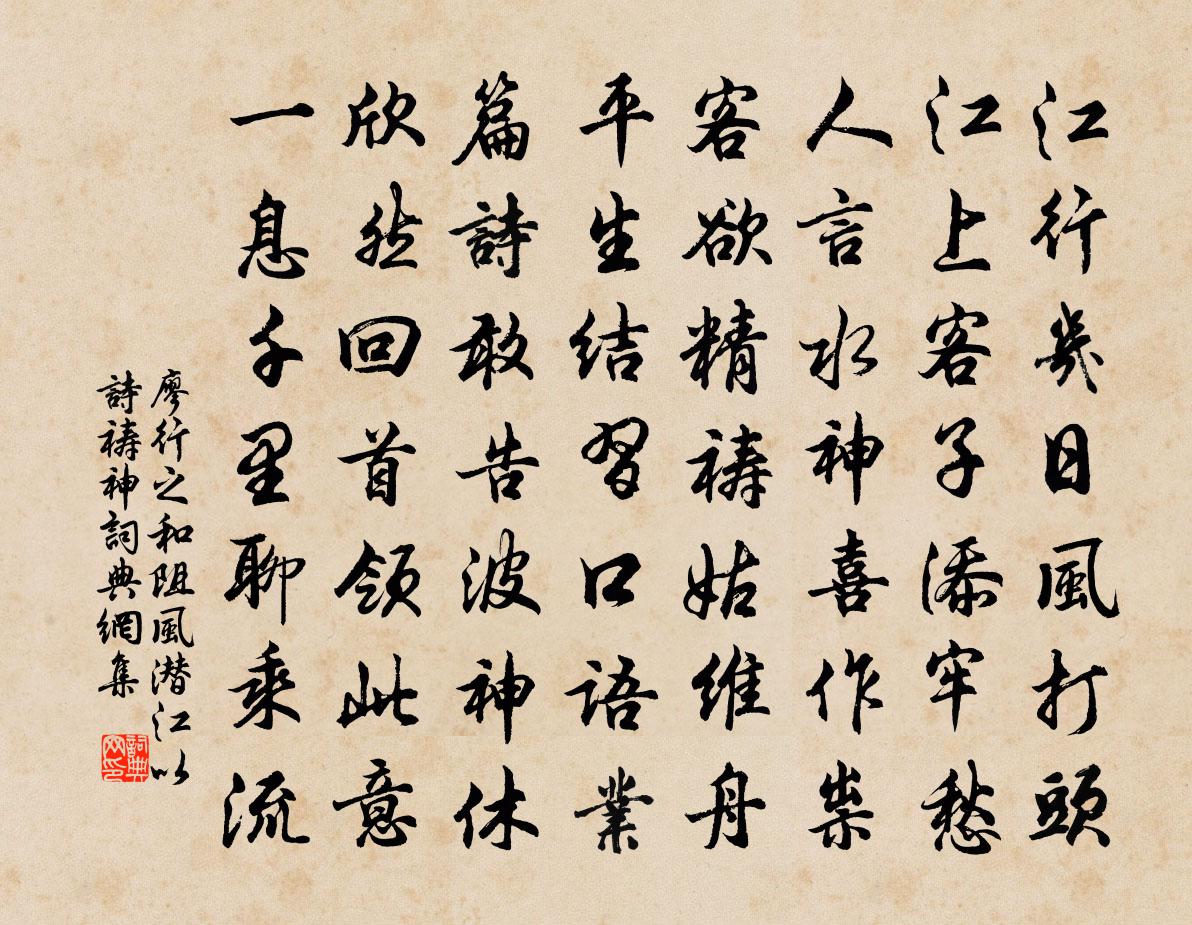 江行幾日風打頭
江上客子添牢愁
人言水神喜作祟
客欲精禱姑維舟
平生结習口語業
篇詩敢告波神休
欣然回首領此意
一息千里聊乘流
廖行之和阻風潜江以
詩禱神詞典網集
詞典网印